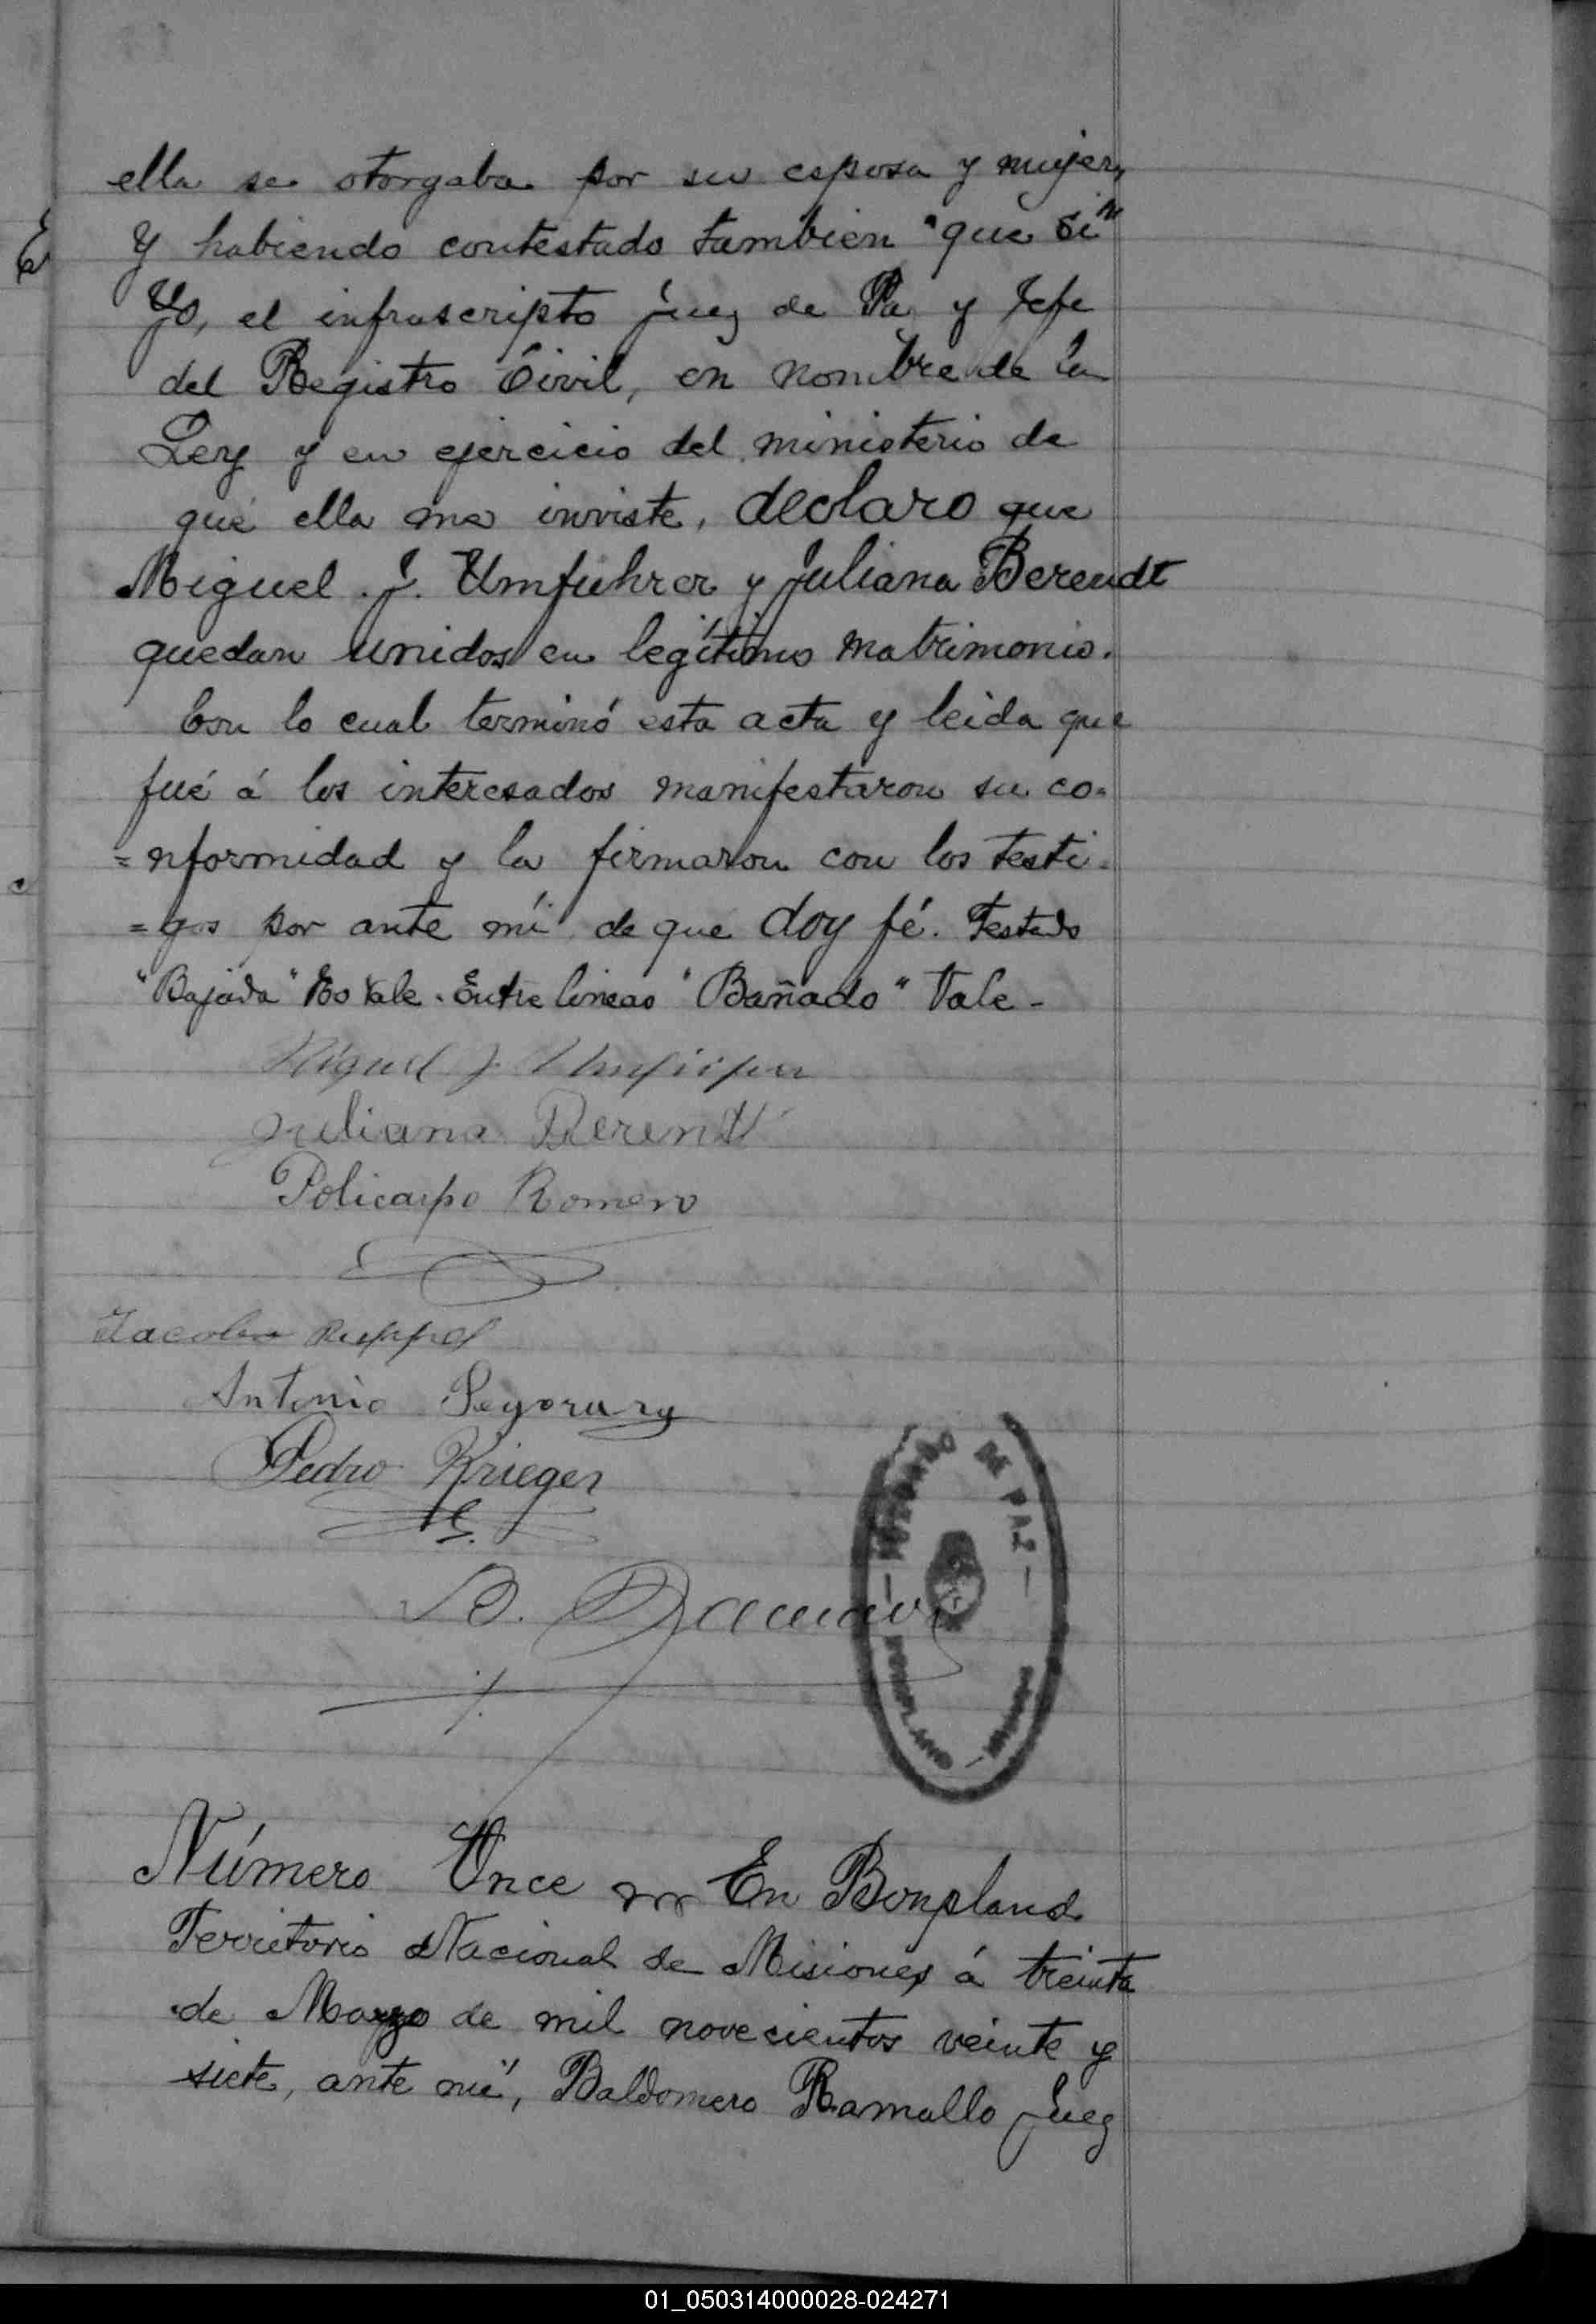 ella se otorgaba por su esposa y mujer,
Y habiendo contestado tambien "que si"
Yo, el infrascripto Juez de Paz y Jefe
del Registro Civil, en nombre de la
Ley y en ejercicio del ministerio de
que ella me inviste, declaro que
Miguel J. Umfuhrer y Juliana Berendt
quedan unidos en legítimo matrimonio.
Con lo cual terminó esta acta y leida que
fué á los interesados manifestaron su co=
=nformidad y la firmaron con los testi=
=gos por ante mí de que doy fé. Testado
"Bajada" No Vale. Entre lineas "Bañado" Vale-
Miguel J.
Juliana Berendt
Policarpo Romero
Jacobo Ruppel
Antonio
Pedro Krieger
B.
JUZGADO DE PAZ
BONPLAND - MISIONES
Número Once En Bonpland
Territorio Nacional de Misiones á treinta
de Marzo de mil novecientos veinte y
siete, ante mí, Baldomero Ramallo Juez
01_050314000028-024271